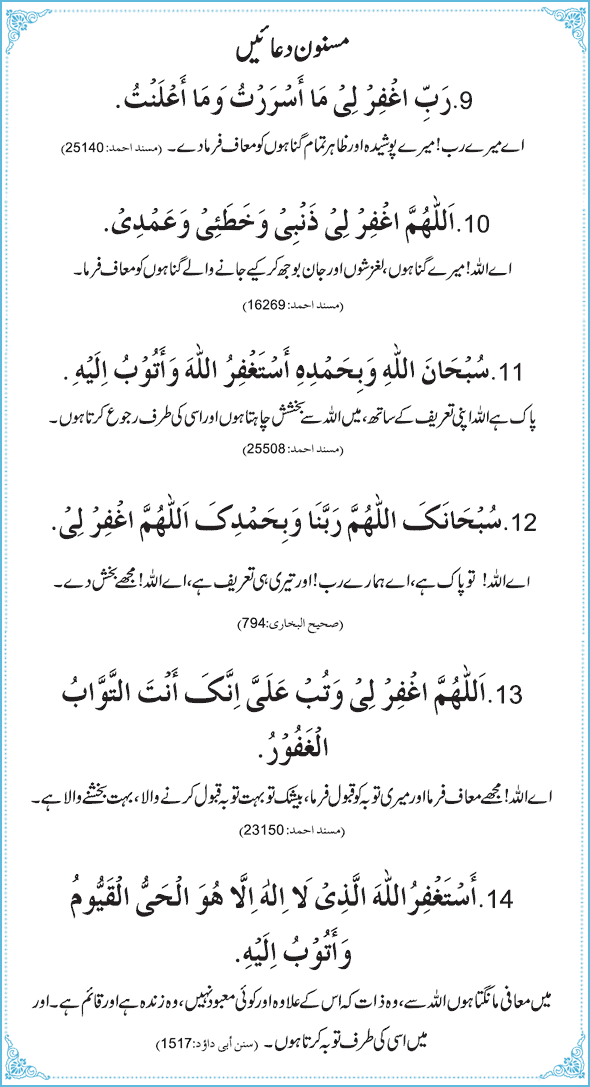 مسنون دعائیں
9. رَبِّ اغْفِرْ لِیْ مَا أَسْرَرْتُ وَمَا أَعْلَنْتُ.
اے میرے رب! میرے پوشیدہ اور ظاہر تمام گناہوں کو معاف فرما دے۔ (مسند احمد: 25140)
10. اَللّٰهُمَّ اغْفِرْ لِیْ ذَنْبِیْ وَخَطَئِیْ وَعَمْدِیْ.
اے اللہ! میرے گناہوں، لغزشوں اور جان بوجھ کر کیے جانے والے گناہوں کو معاف فرما۔
(مسند احمد: 16269)
11. سُبْحَانَ اللهِ وَبِحَمْدِهِ أَسْتَغْفِرُ اللهَ وَأَتُوْبُ اِلَيْهِ.
پاک ہے اللہ اپنی تعریف کے ساتھ، میں اللہ سے بخشش چاہتا ہوں اور اسی کی طرف رجوع کرتا ہوں۔
(مسند احمد: 25508)
12. سُبْحَانَکَ اللّٰهُمَّ رَبَّنَا وَبِحَمْدِکَ اَللّٰهُمَّ اغْفِرْ لِیْ.
اے اللہ! تو پاک ہے، اے ہمارے رب! اور تیری ہی تعریف ہے، اے اللہ! مجھے بخش دے۔
(صحیح البخاری: 794)
13. اَللّٰهُمَّ اغْفِرْ لِیْ وَتُبْ عَلَیَّ اِنَّکَ أَنْتَ التَّوَّابُ
الْغَفُوْرُ.
اے اللہ! مجھے معاف فرما اور میری توبہ کو قبول فرما، بیشک تو بہت توبہ قبول کرنے والا، بہت بخشنے والا ہے۔
(مسند احمد: 23150)
14. أَسْتَغْفِرُ اللهَ الَّذِیْ لَا اِلٰهَ اِلَّا هُوَ الْحَیُّ الْقَیُّومُ
وَأَتُوْبُ اِلَيْهِ.
میں معافی مانگتا ہوں اللہ سے، وہ ذات کہ اس کے علاوہ اور کوئی معبود نہیں، وہ زندہ ہے اور قائم ہے۔ اور
میں اسی کی طرف توبہ کرتا ہوں۔ (سنن أبی داؤد: 1517)